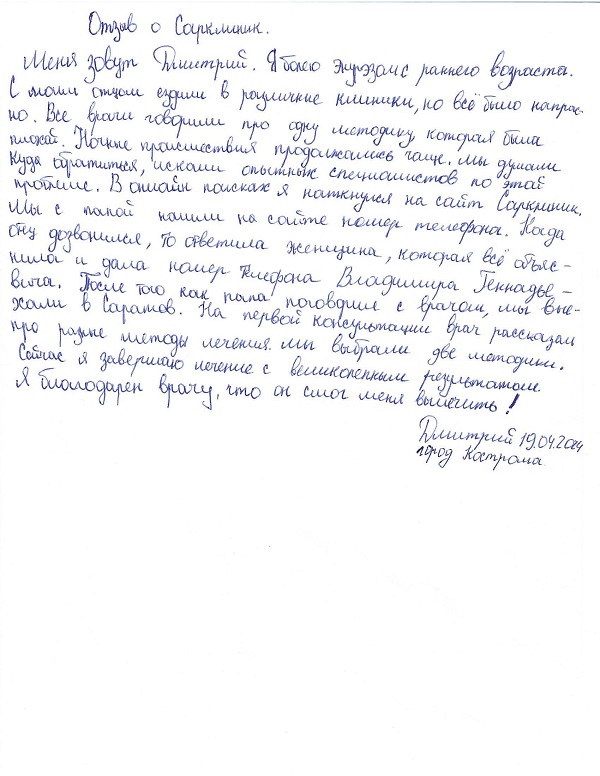 Отзыв о Саркклиник.
Меня зовут Дмитрий. Я болею энурэзом с раннего возраста.
С моим отцом ездили в различные клиники, но всё было напрас-
но. Все врачи говорили про одну методику, которая была
плохой. Ночные происшествия продолжались чаще. Мы думали
куда обратиться, искали опытных специалистов по этой
проблеме. В онлайн поисках я наткнулся на сайт Саркклиник.
Мы с папой нашли на сайте номер телефона. Когда
отец дозвонился, то ответила женщина, которая всё объяс-
нила и дала номер телефона Владимира Геннадье-
вича. После того как папа поговорил с врачом, мы вые-
хали в Саратов. На первой консультации врач рассказал
про разные методы лечения. Мы выбрали две методики.
Сейчас я завершаю лечение с великолепным результатом.
Я благодарен врачу, что он смог меня вылечить!
Дмитрий 19.04.2024
город Кострома.